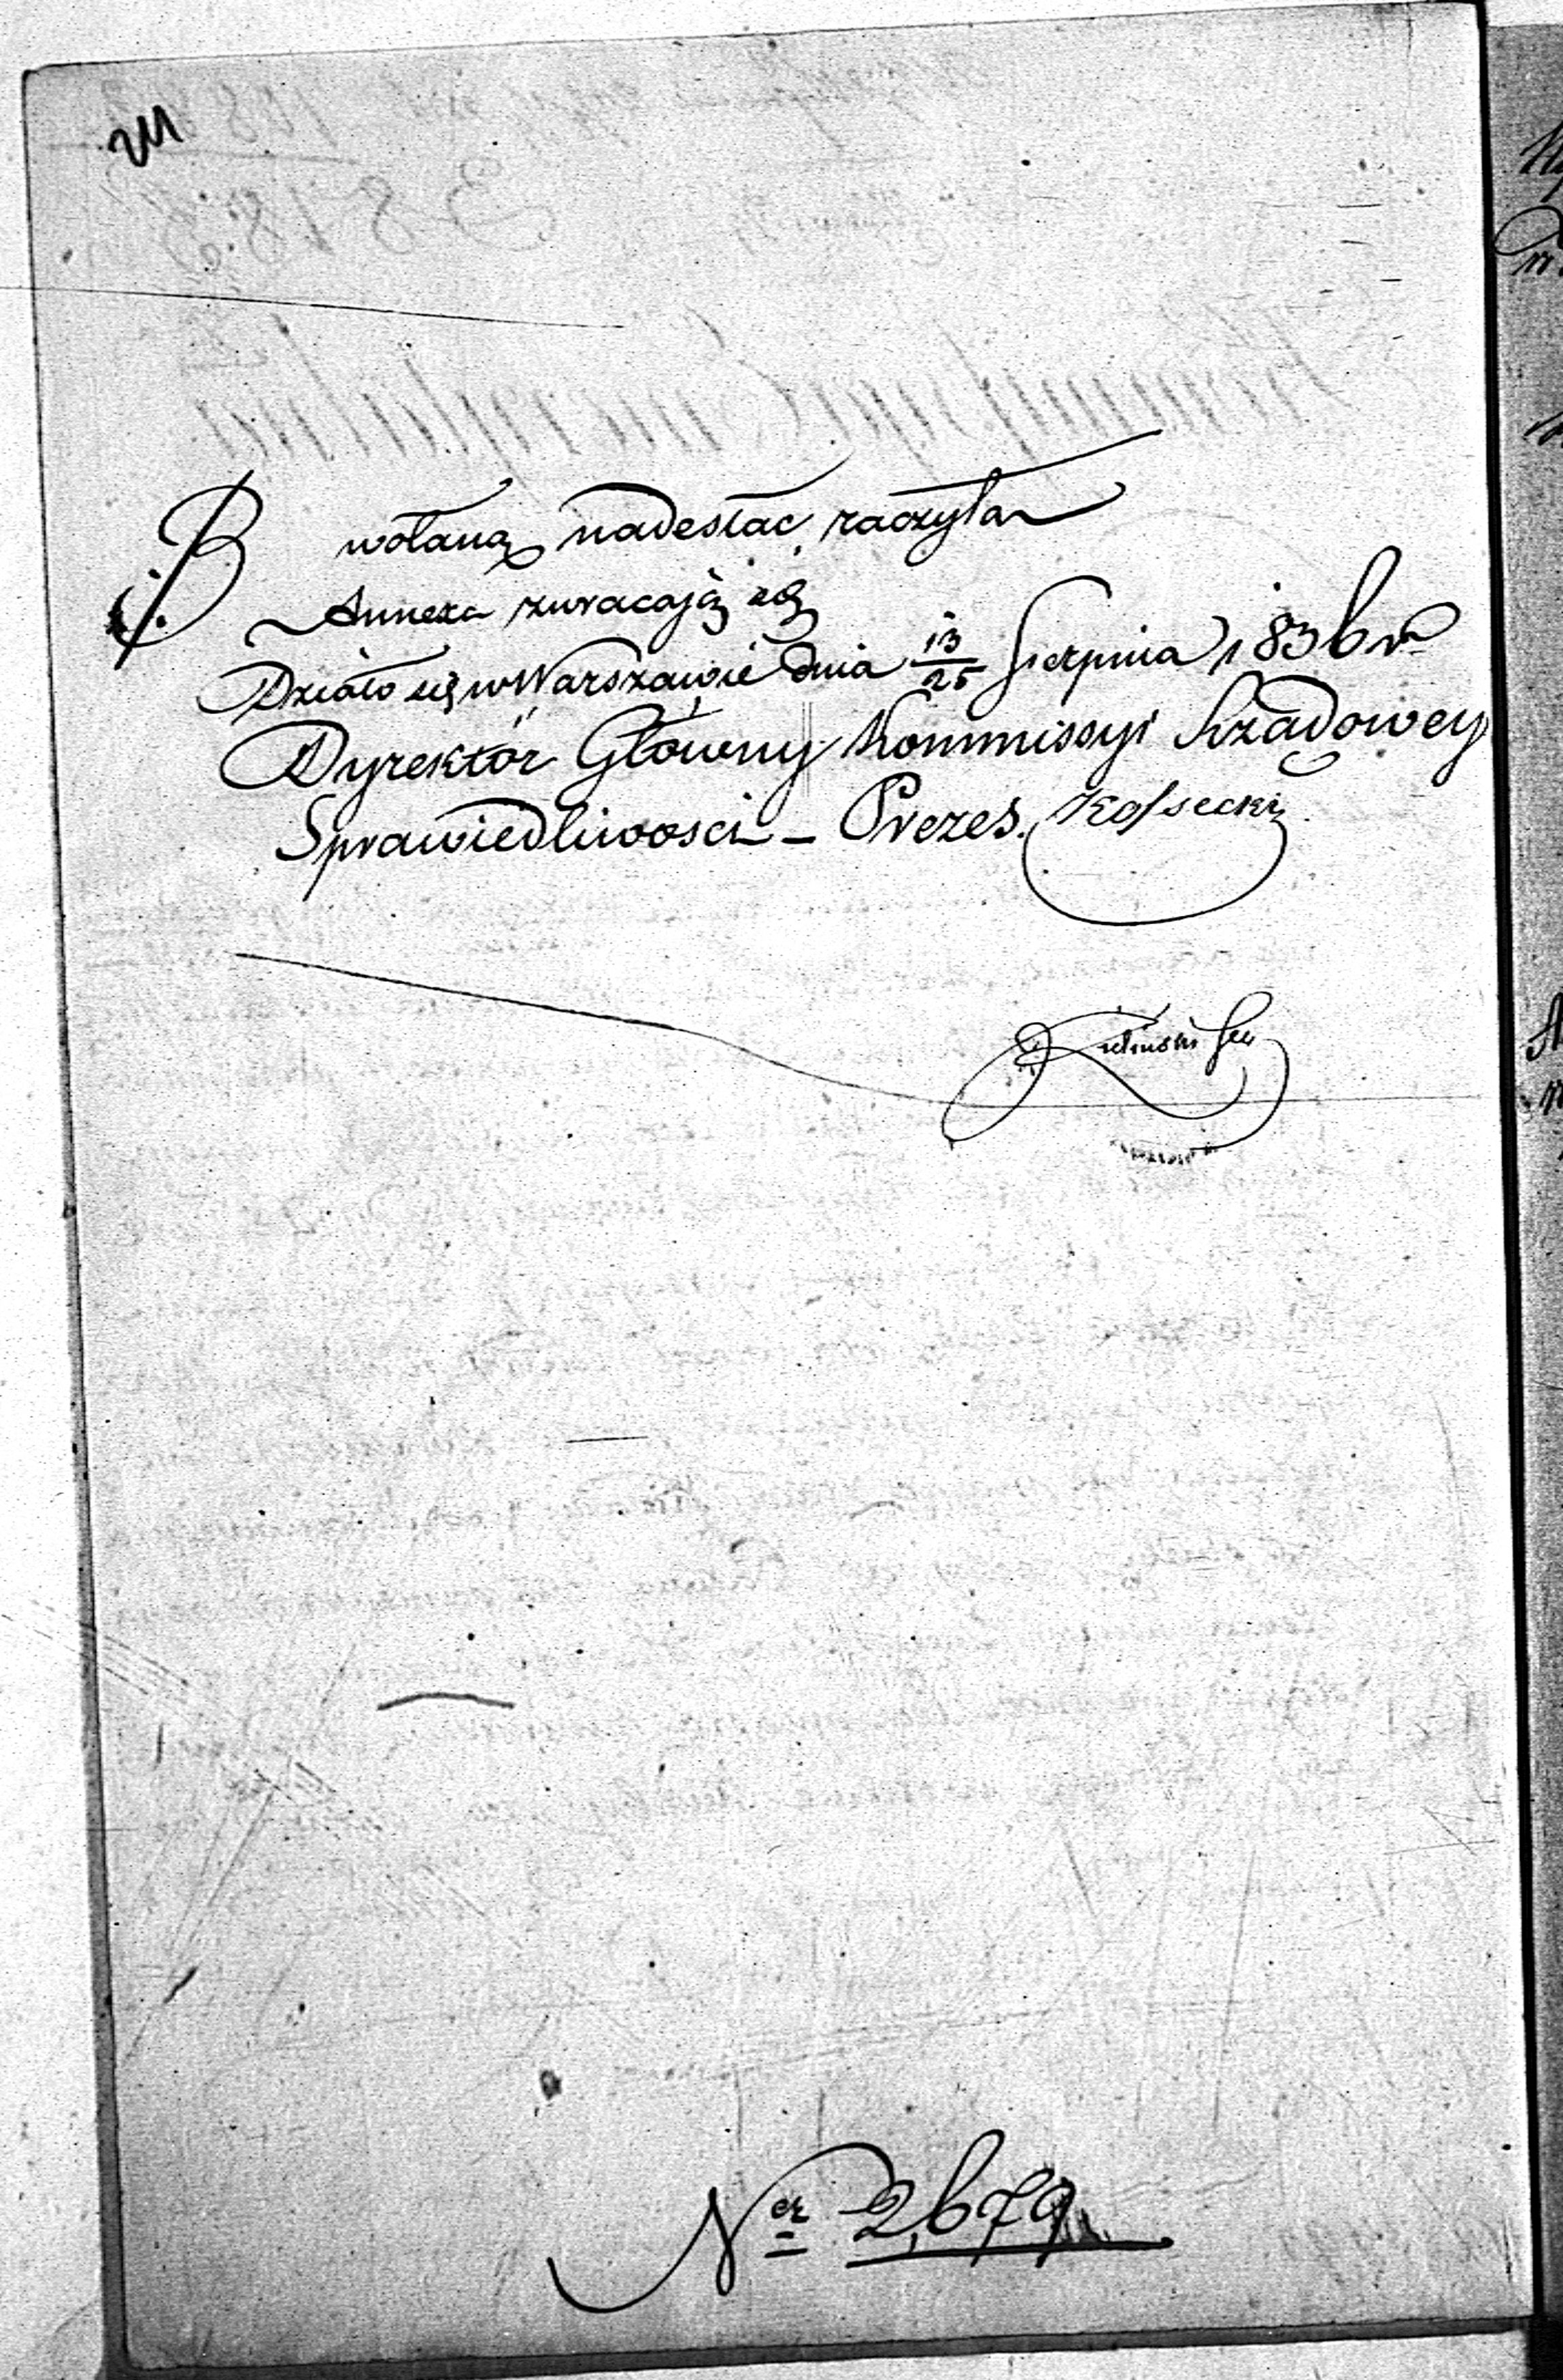 wołaną nadesłać raczyła
Annexa zwracają się
Działo się w Warszawie dnia 13/25 Sierpnia 1836 r.
Dyrektor Główny Kommissyi Rządowey
Sprawiedliwości – Prezes. Kossecki
Ner 2,679